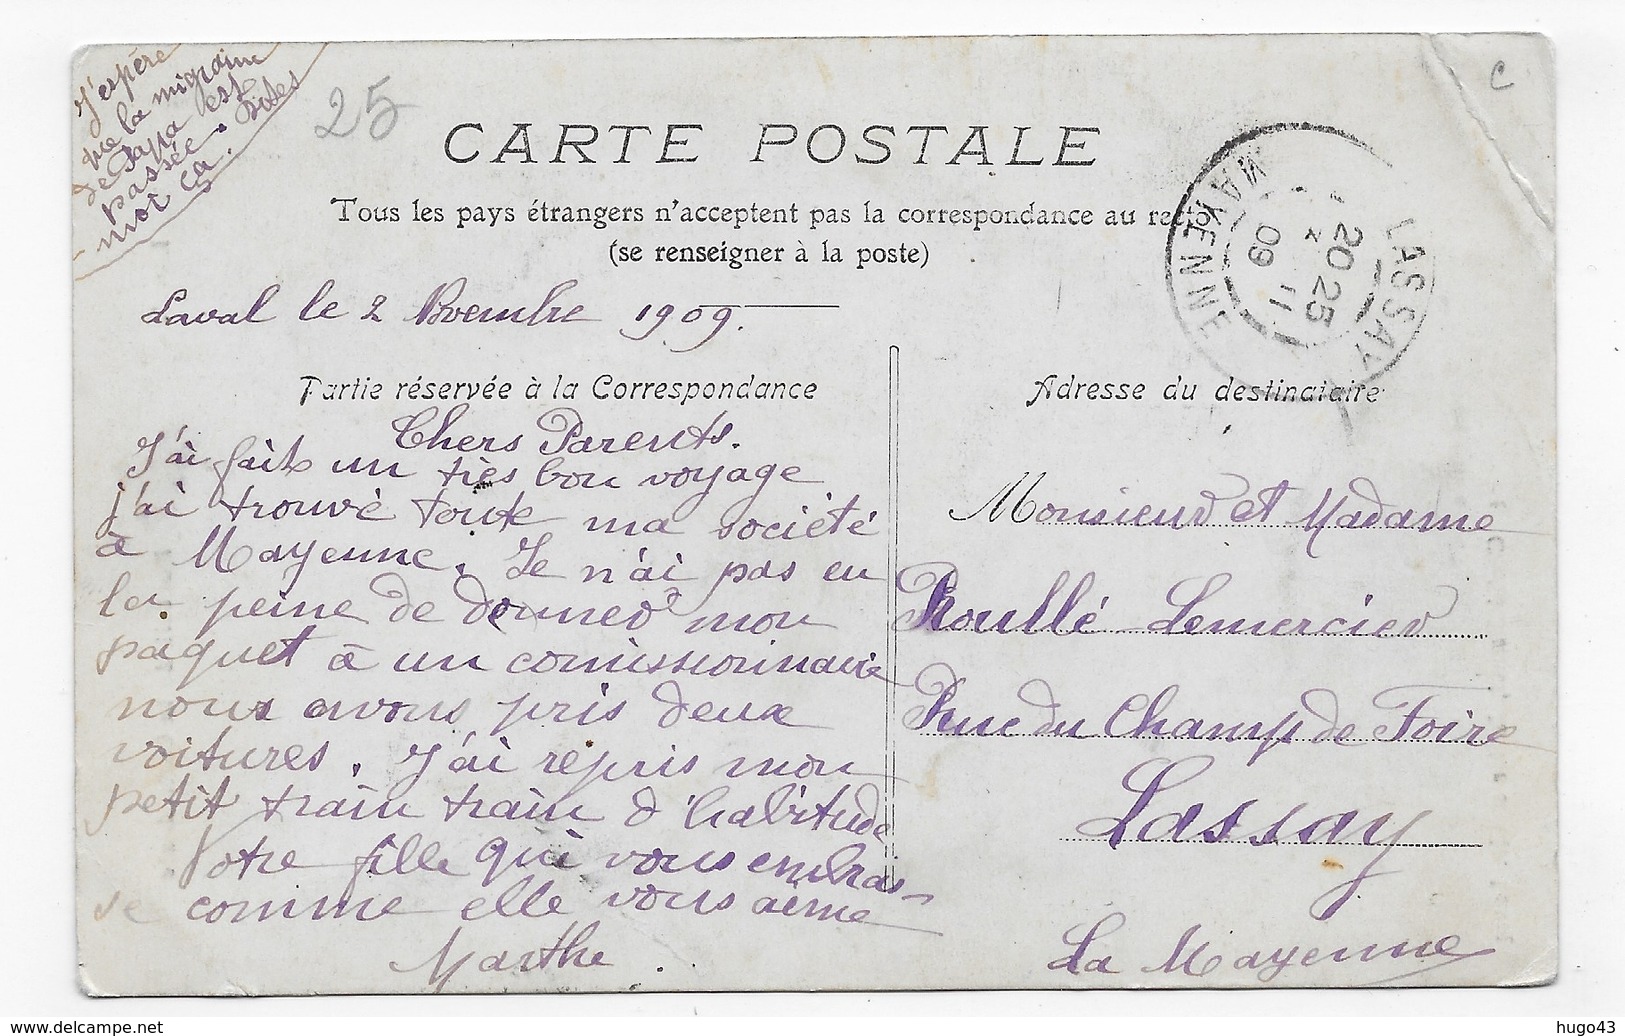 J'espère
que la migraine
de Papa est
passée. Dites
moi ça.
25
C
CARTE POSTALE
Tous les pays étrangers n'acceptent pas la correspondance au recto
(se renseigner à la poste)
LASSAY
MAYENNE
20 25
2 - 11
09
Laval le 2 Novembre 1909.
Partie réservée à la Correspondance
Adresse du destinataire
Chers Parents.
J'ai fait un très bon voyage
j'ai trouvé toute ma société
à Mayenne. Je n'ai pas eu
la peine de donner mon
paquet à un comissionnaire
nous avons pris deux
voitures. J'ai repris mon
petit train train d'habitude
Votre fille qui vous embras-
se comme elle vous aime
Marthe.
Monsieur et Madame
Roullé Lemercier
Rue du Champ de Foire
Lassay
La Mayenne
delcampe.net
hugo43